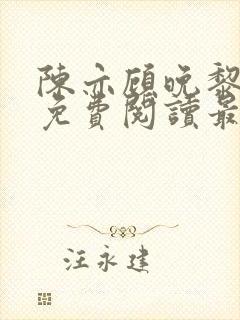 陳亦顧晚黎
免費閱讀最
汪永建